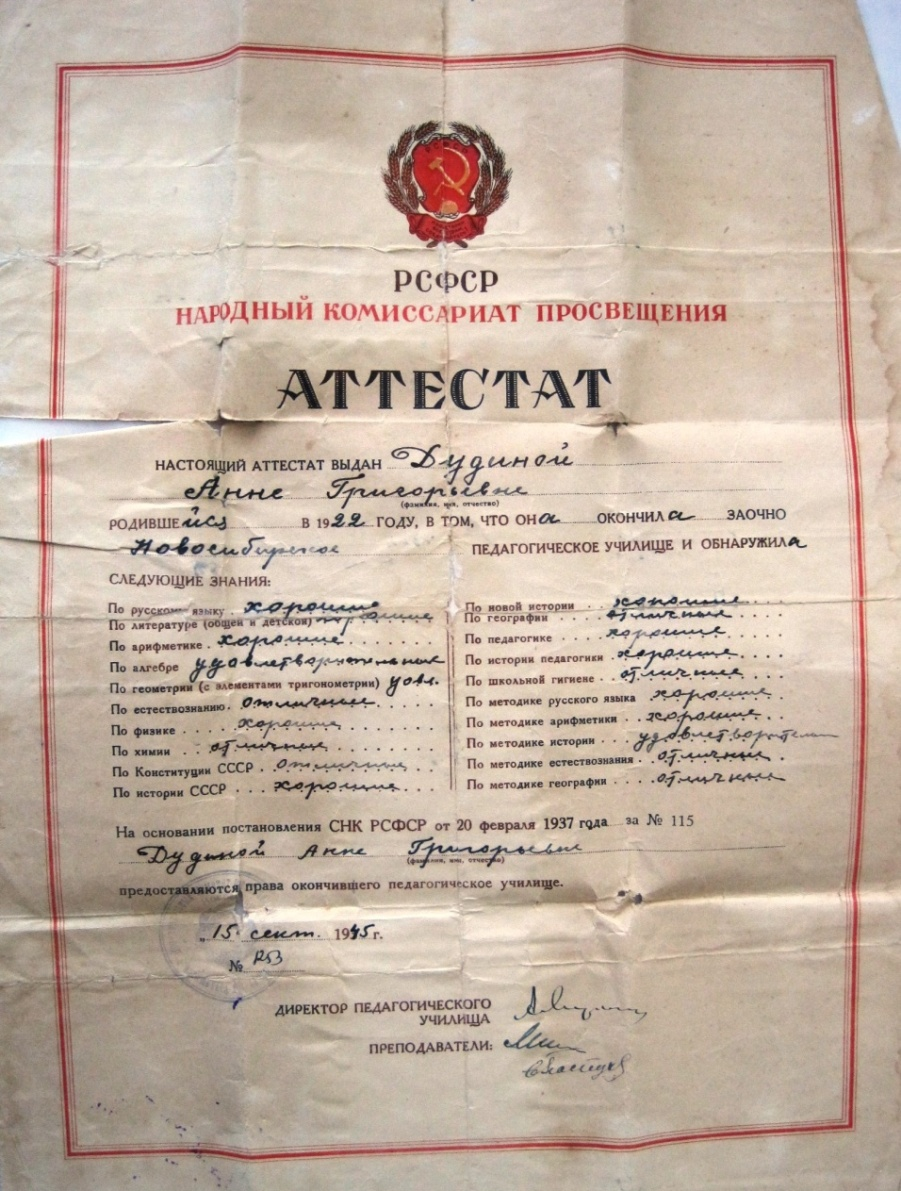 РСФСР
НАРОДНЫЙ КОМИССАРИАТ ПРОСВЕЩЕНИЯ
АТТЕСТАТ
НАСТОЯЩИЙ АТТЕСТАТ ВЫДАН Дудиной
Анне Григорьевне
(фамилия, имя, отчество)
РОДИВШЕйся В 1922 ГОДУ, В ТОМ, ЧТО ОНа ОКОНЧИЛа ЗАОЧНО
Новосибирское ПЕДАГОГИЧЕСКОЕ УЧИЛИЩЕ И ОБНАРУЖИЛа
СЛЕДУЮЩИЕ ЗНАНИЯ:
По русскому языку . хорошие
По литературе (общей и детской) хорошие
По арифметике . хорошие
По алгебре удовлетворительные
По геометрии (с элементами тригонометрии) удвл.
По естествознанию . отличные
По физике . . . . хорошие
По химии . . отличные
По Конституции СССР . . отличные
По истории СССР . . . хорошие
По новой истории . . . хорошие
По географии . . . отличные
По педагогике . . . . хорошие
По истории педагогики . хорошие
По школьной гигиене . . отличные
По методике русского языка хорошие
По методике арифметики . . хорошие
По методике истории . . . удовлетворительн
По методике естествознания . отличные
По методике географии . . . отличные
На основании постановления СНК РСФСР от 20 февраля 1937 года за № 115
Дудиной Анне Григорьевне
(фамилия, имя, отчество)
предоставляются права окончившего педагогическое училище.
„15. сент. 1945 г.
№ 253
ДИРЕКТОР ПЕДАГОГИЧЕСКОГО
УЧИЛИЩА
ПРЕПОДАВАТЕЛИ: